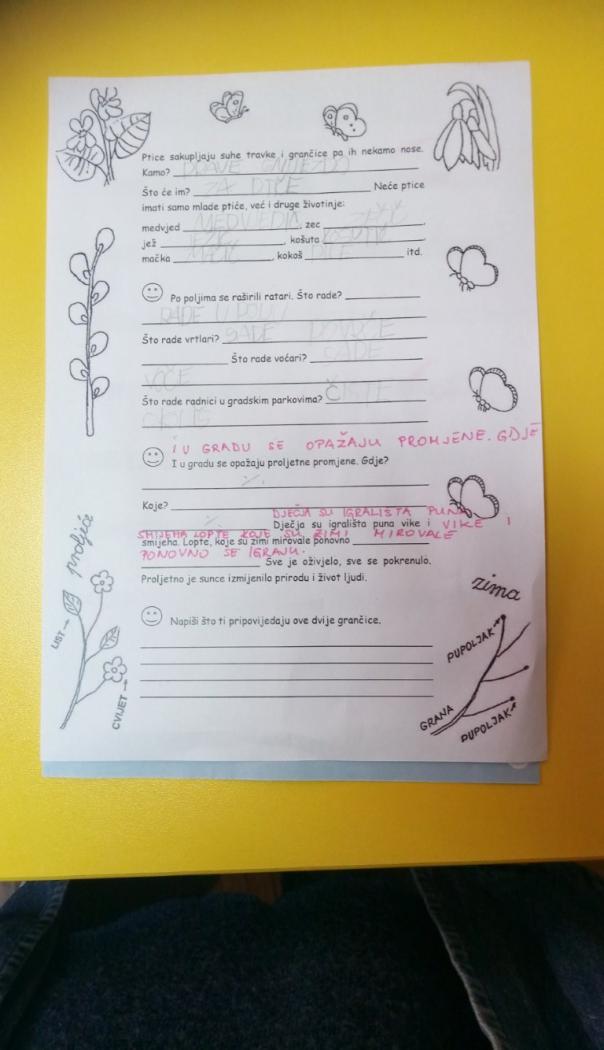 Ptice sakupljaju suhe travke i grančice pa ih nekamo nose.
Kamo? PRAVE GNIJEZDO
Što će im? ZA PTIĆE Neće ptice
imati samo mlade ptiće, već i druge životinje:
medvjed MEDVJEDIĆ, zec ZEČIĆ,
jež JEŽIĆ, košuta KOŠUTIĆ,
mačka MAČIĆ, kokoš PILE itd.
Po poljima se raširili ratari. Što rade?
RADE U POLJU
Što rade vrtlari? SADE POVRĆE
Što rade voćari? SADE
VOĆE
Što rade radnici u gradskim parkovima? ČISTE
OKOLIŠ
I U GRADU SE OPAŽAJU PROMJENE. GDJE
I u gradu se opažaju proljetne promjene. Gdje?
Koje?
DJEČJA SU IGRALIŠTA PUNA
Dječja su igrališta puna vike i VIKE I
SMIJEHA LOPTE KOJE SU ZIMI MIROVALE
smijeha. Lopte, koje su zimi mirovale ponovno
PONOVNO SE IGRAJU.
Sve je oživjelo, sve se pokrenulo.
Proljetno je sunce izmijenilo prirodu i život ljudi.
proljeće
zima
Napiši što ti pripovijedaju ove dvije grančice.
LIST
CVIJET
PUPOLJAK
GRANA
PUPOLJAK